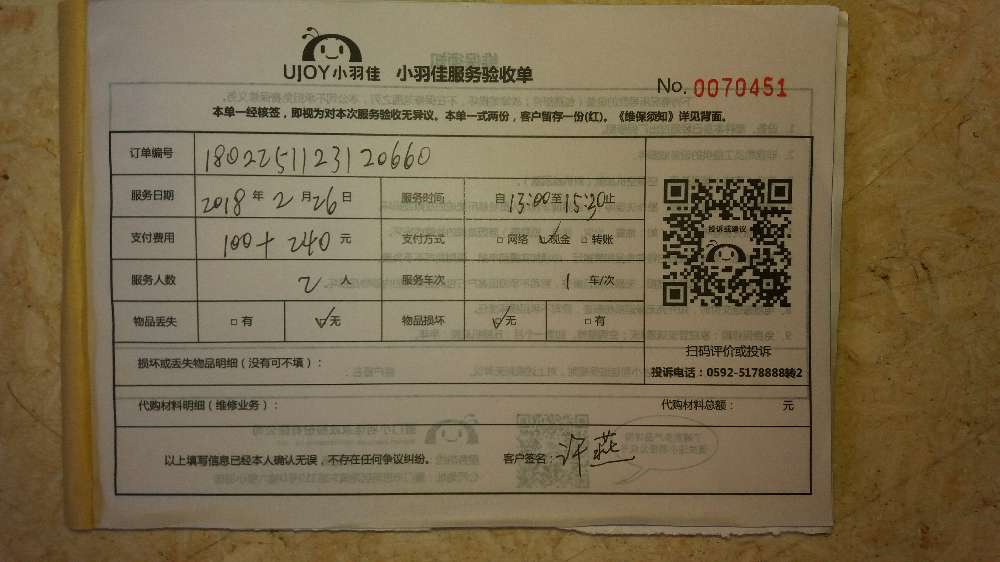 UJOY小羽佳 小羽佳服务验收单
No. 0070451
本单一经核签，即视为对本次服务验收无异议。本单一式两份，客户留存一份(红)。《维保须知》详见背面。
订单编号 1802251123120660
服务日期 2018 年 2 月 26 日 服务时间 自 13:00 至 15:30 止
投诉或建议
支付费用 100+240 元 支付方式 □ 网络 ☑ 现金 □ 转账
服务人数 2 人 服务车次 1 车/次
物品丢失 □ 有 ☑ 无 物品损坏 ☑ 无 □ 有
扫码评价或投诉
损坏或丢失物品明细（没有可不填）：
投诉电话：0592-5178888转2
代购材料明细（维修业务）： 代购材料总额： 元
以上填写信息已经本人确认无误，不存在任何争议纠纷。 客户签名：许燕